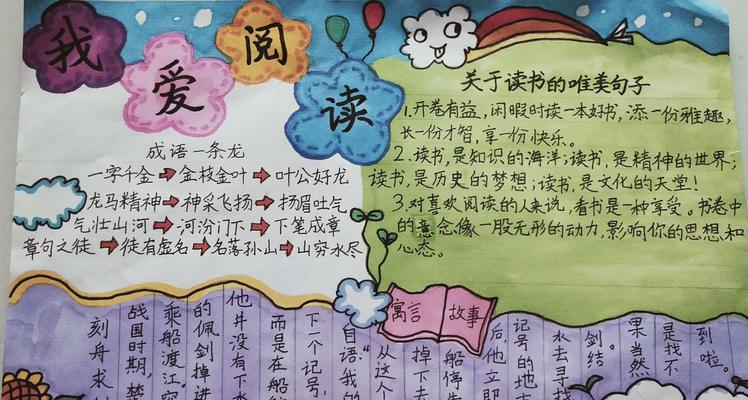 我爱阅读
成语一条龙
一字千金→金枝金叶→叶公好龙
龙马精神→神采飞扬→扬眉吐气
气壮山河→河汾门下→下笔成章
章句之徒→徒有虚名→名落孙山→山穷水尽
关于读书的唯美句子
1.开卷有益,闲暇时读一本好书,添一份雅趣,
长一份才智,享一份快乐。
2.读书,是知识的海洋;读书,是精神的世界;
读书,是历史的梦想;读书,是文化的天堂!
3.对喜欢阅读的人来说,看书是一种享受。书卷中
的意念像一股无形的动力,影响你的思想和
心态。
寓言 故事
刻舟求
战国时期,楚
乘船渡江,突
的佩剑掉进
他并没有下水
而是在船
下一个记号,
自语:“我的
从这个
掉下去
船停
后,他立即
记号的地
水去寻找
剑。结
果当然
是找不
到啦。